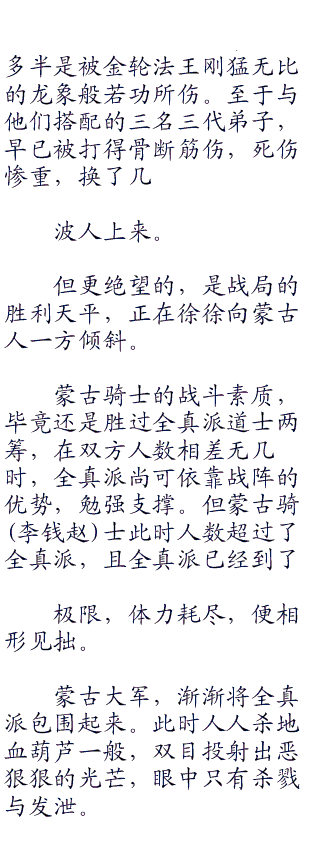 多半是被金轮法王刚猛无比
的龙象般若功所伤。至于与
他们搭配的三名三代弟子，
早已被打得骨断筋伤，死伤
惨重，换了几
波人上来。
但更绝望的，是战局的
胜利天平，正在徐徐向蒙古
人一方倾斜。
蒙古骑士的战斗素质，
毕竟还是胜过全真派道士两
筹，在双方人数相差无几
时，全真派尚可依靠战阵的
优势，勉强支撑。但蒙古骑
(李钱赵)士此时人数超过了
全真派，且全真派已经到了
极限，体力耗尽，便相
形见拙。
蒙古大军，渐渐将全真
派包围起来。此时人人杀地
血葫芦一般，双目投射出恶
狠狠的光芒，眼中只有杀戮
与发泄。